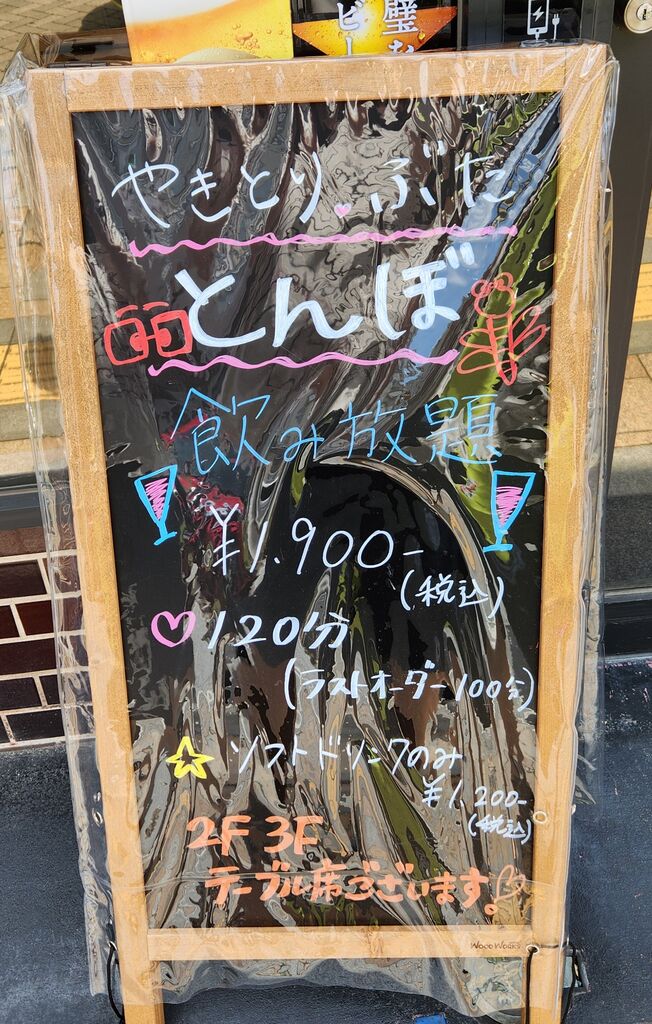 璧な
ビー
やきとり・ぶた
とんぼ
飲み放題
¥1.900-
(税込)
120分
(ラストオーダー100分)
ソフトドリンクのみ
¥1.200-
(税込)
2F 3F
テーブル席ございます。
WOOD WORKS